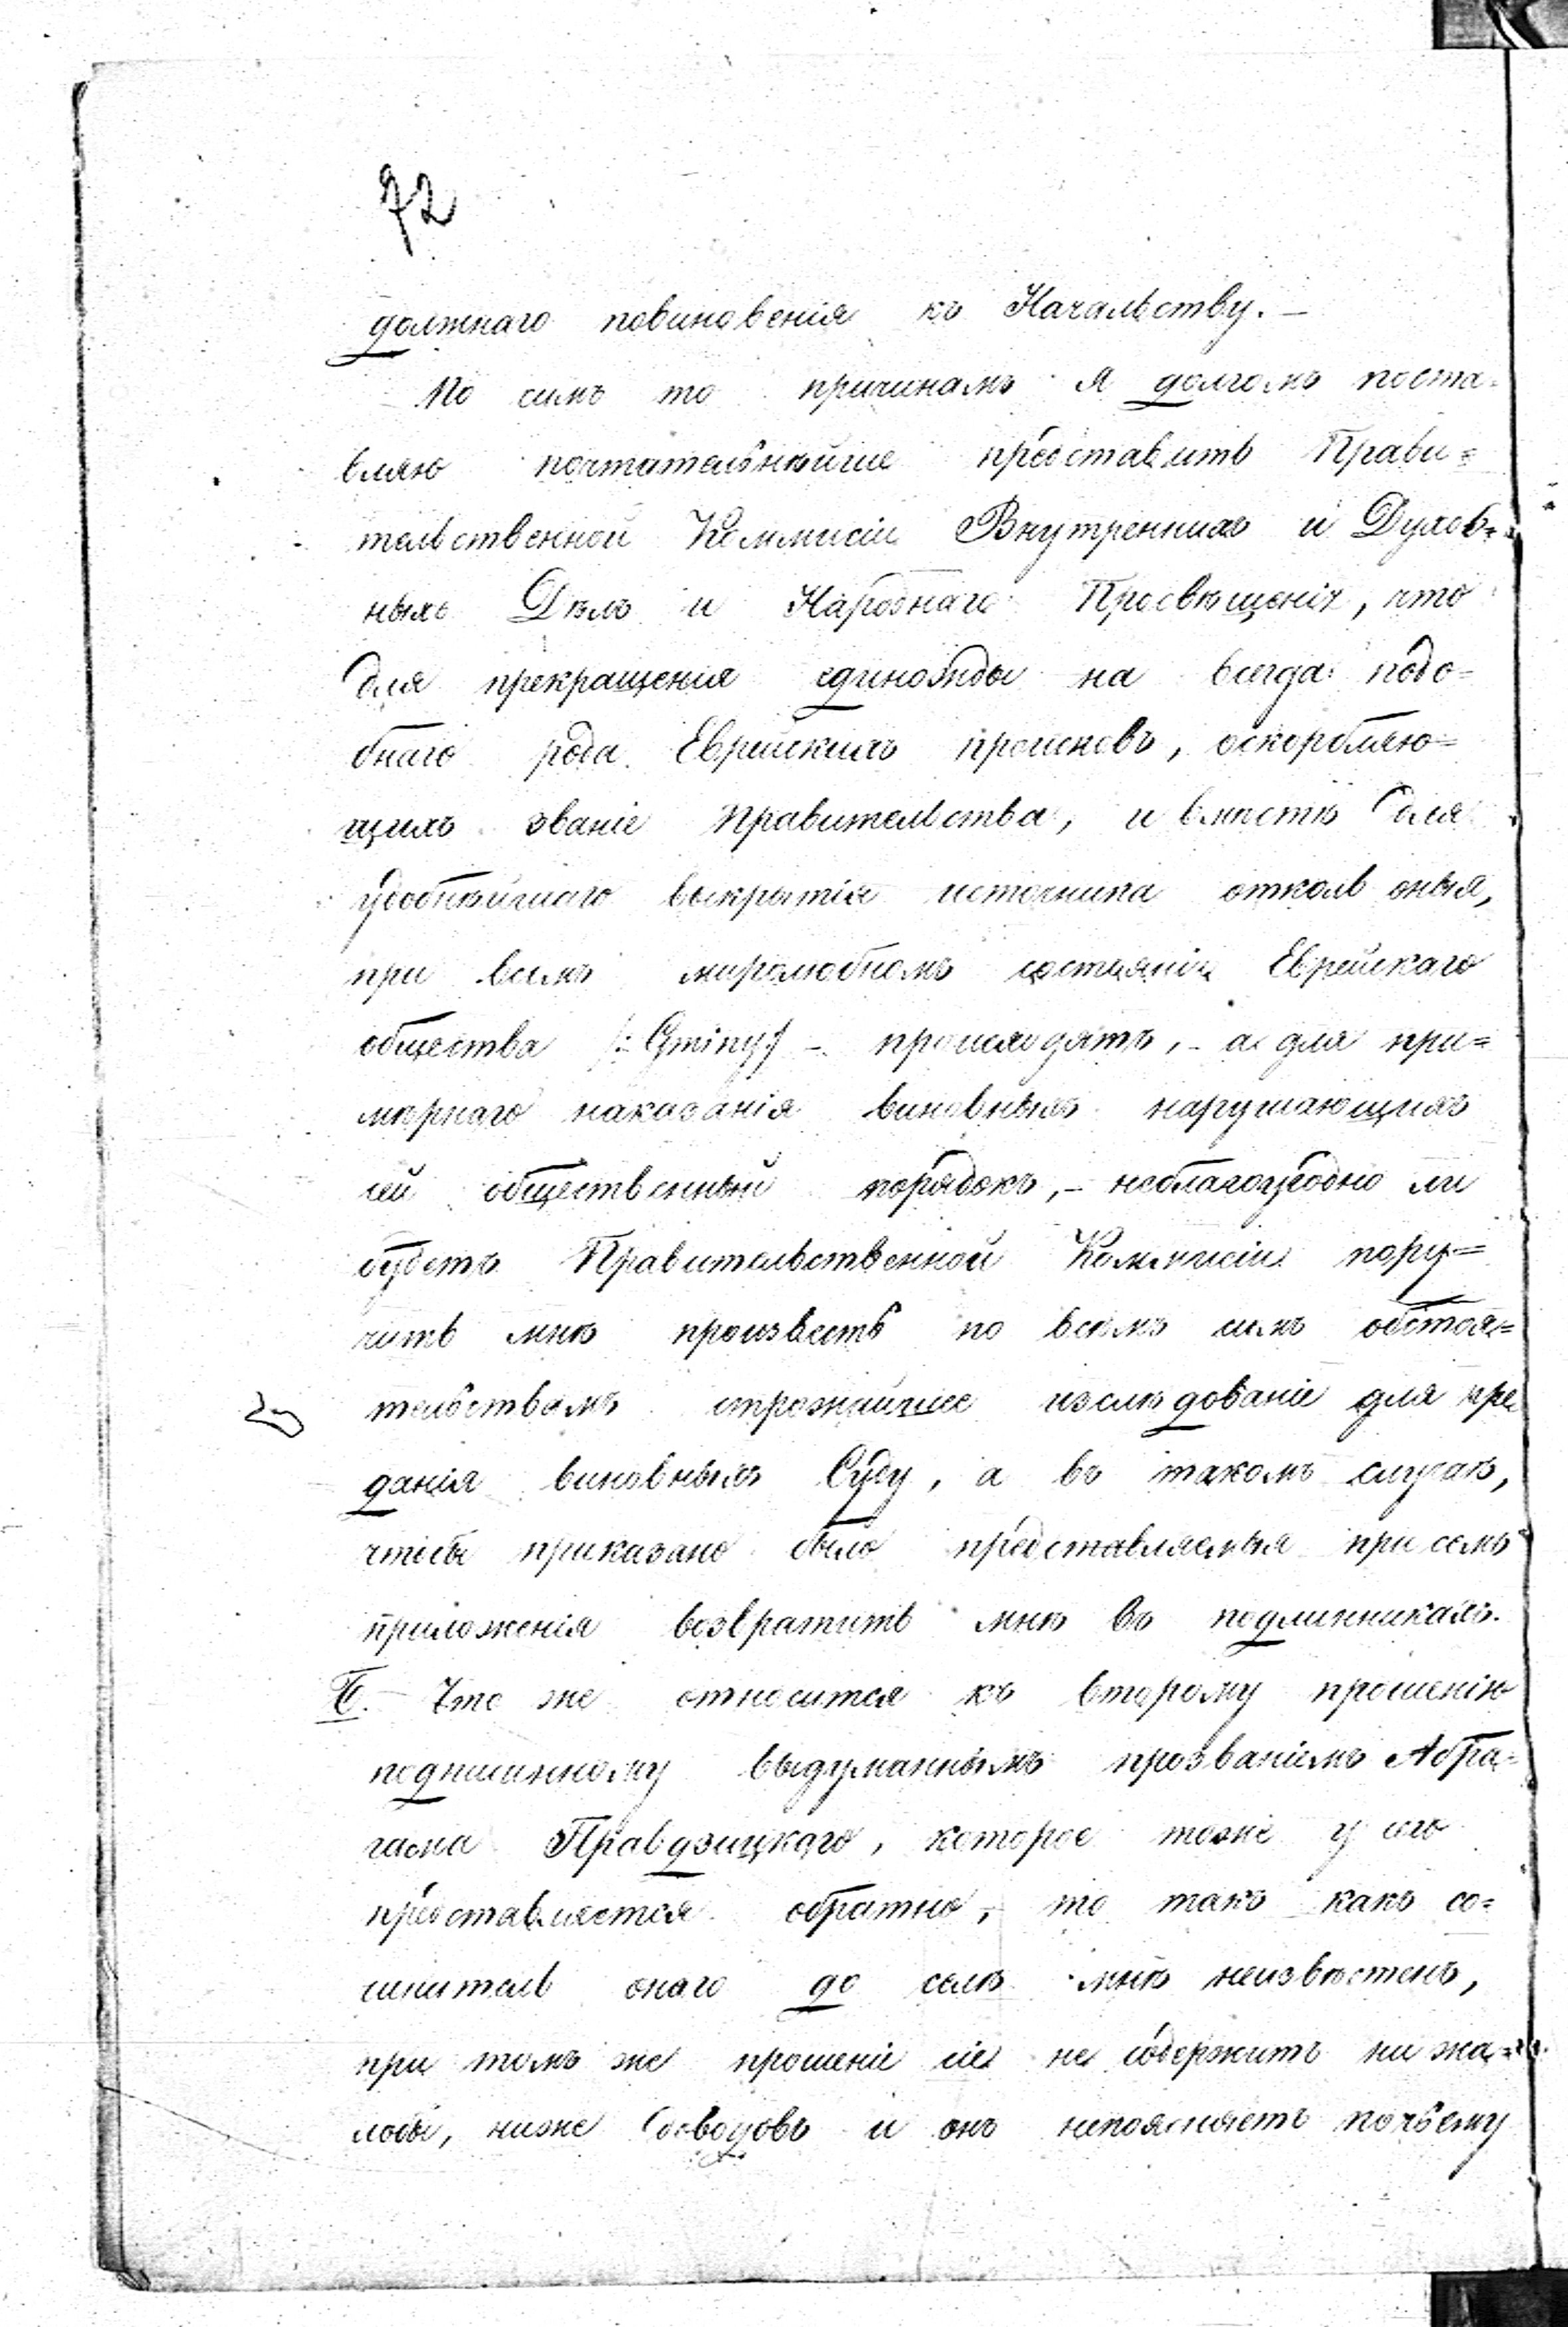 72
должнаго повиновенія къ Начальству. —
По симъ то причинамъ я долгомъ поста=
вляю почтительнѣйше представить Прави=
тельственной Коммисіи Внутреннихъ и Духов=
ныхъ Дѣлъ и Народнаго Просвѣщенія, что
для прекращенія единожды на всегда подо=
бнаго рода Еврейскихъ происковъ, оскорбляю=
щихъ званіе Правительства, и вмѣстѣ для
удобнѣйшаго выкрытія источника отколь оныя,
при всемъ миролюбномъ состояніи Еврейскаго
общества /:Gminy/ — происходятъ, — а для при=
мѣрнаго наказанія виновныхъ нарушающихъ
сей общественный порядокъ, — неблагоугодно ли
будетъ Правительственной Коммисіи пору=
чить мнѣ произвесть по всѣмъ симъ обстоя=
тельствамъ строжайшее изслѣдованіе для пре
данія виновныхъ Суду, а въ такомъ случаѣ,
чтобы приказано было представляемыя при семъ
приложенія возвратить мнѣ въ подлинникахъ.
Б. — Что же относится къ второму прошенію
подписанному выдуманнымъ прозваніемъ Абра=
гама Правдзицкаго, которое тоже у сего
представляется обратно, то такъ какъ со=
чинитель онаго до селѣ мнѣ неизвѣстенъ,
при томъ же прошеніе сіе не содержитъ ни жа=
лобы, ниже доводовъ и онъ непоясняетъ почему